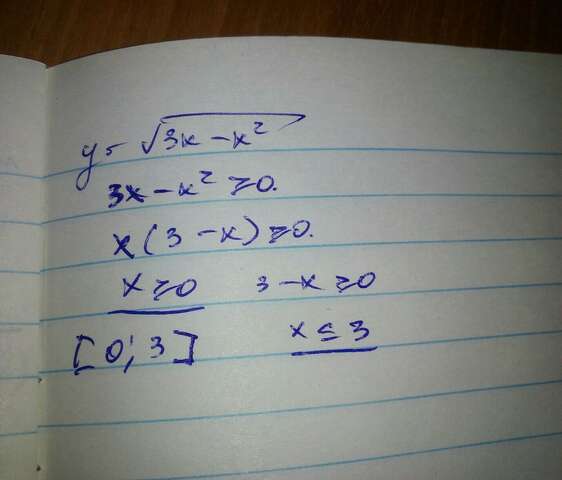 y = √(3x - x²)
3x - x² ≥ 0.
x(3 - x) ≥ 0.
x ≥ 0 3 - x ≥ 0
[0; 3] x ≤ 3